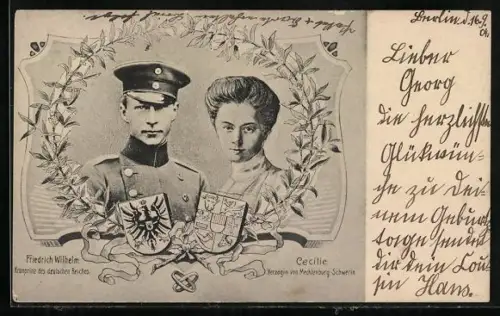 Berlin d. 16.9.
04.
Lieber
Georg
die herzlichsten
Glückwün-
sche zu dei-
nem Geburts
tage sendet
dir dein Cou-
sin Hans.
Friedrich Wilhelm
Kronprinz des deutschen Reiches.
Cecilie
Herzogin von Mecklenburg-Schwerin